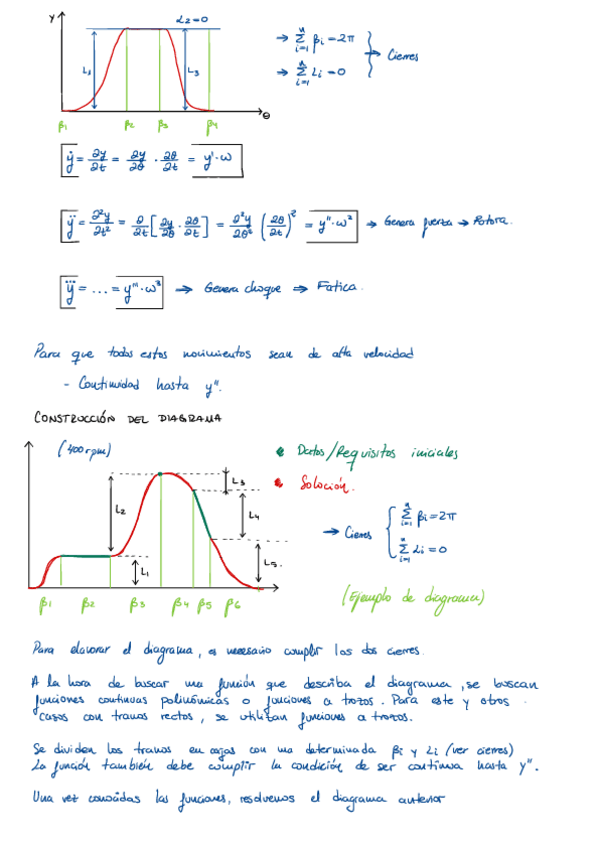 y
L2=0
→ Σ(i=1..n) βi = 2π
→ Σ(i=1..n) Li = 0
→ Cierres
L1
L3
θ
β1 β2 β3 β4
ẏ = ∂y/∂t = ∂y/∂θ · ∂θ/∂t = y'·ω
ÿ = ∂²y/∂t² = ∂/∂t [∂y/∂θ · ∂θ/∂t] = ∂²y/∂θ² (∂θ/∂t)² = y''·ω² → Genera fuerza → Rotora.
y⃛ = ... = y'''·ω³ → Genera choque → Fatica.
Para que todos estos movimientos sean de alta velocidad
- Continuidad hasta y''.
CONSTRUCCIÓN DEL DIAGRAMA
(400 rpm)
Datos/Requisitos iniciales
Solución.
L3
L2
L4
L1
L5.
→ Cierres { Σ(i=1..n) βi = 2π
Σ(i=1..n) Li = 0
β1 β2 β3 β4 β5 β6
(Ejemplo de diagrama)
Para elavorar el diagrama, es necesario cumplir los dos cierres.
A la hora de buscar una función que describa el diagrama, se buscan
funciones continuas polinómicas o funciones a trozos. Para este y otros
casos con tramos rectos, se utilizan funciones a trozos.
Se dividen los tramos en cajas con una determinada βi y Li (ver cierres)
La función también debe cumplir la condición de ser continua hasta y''.
Una vez conocidas las funciones, resolvemos el diagrama anterior